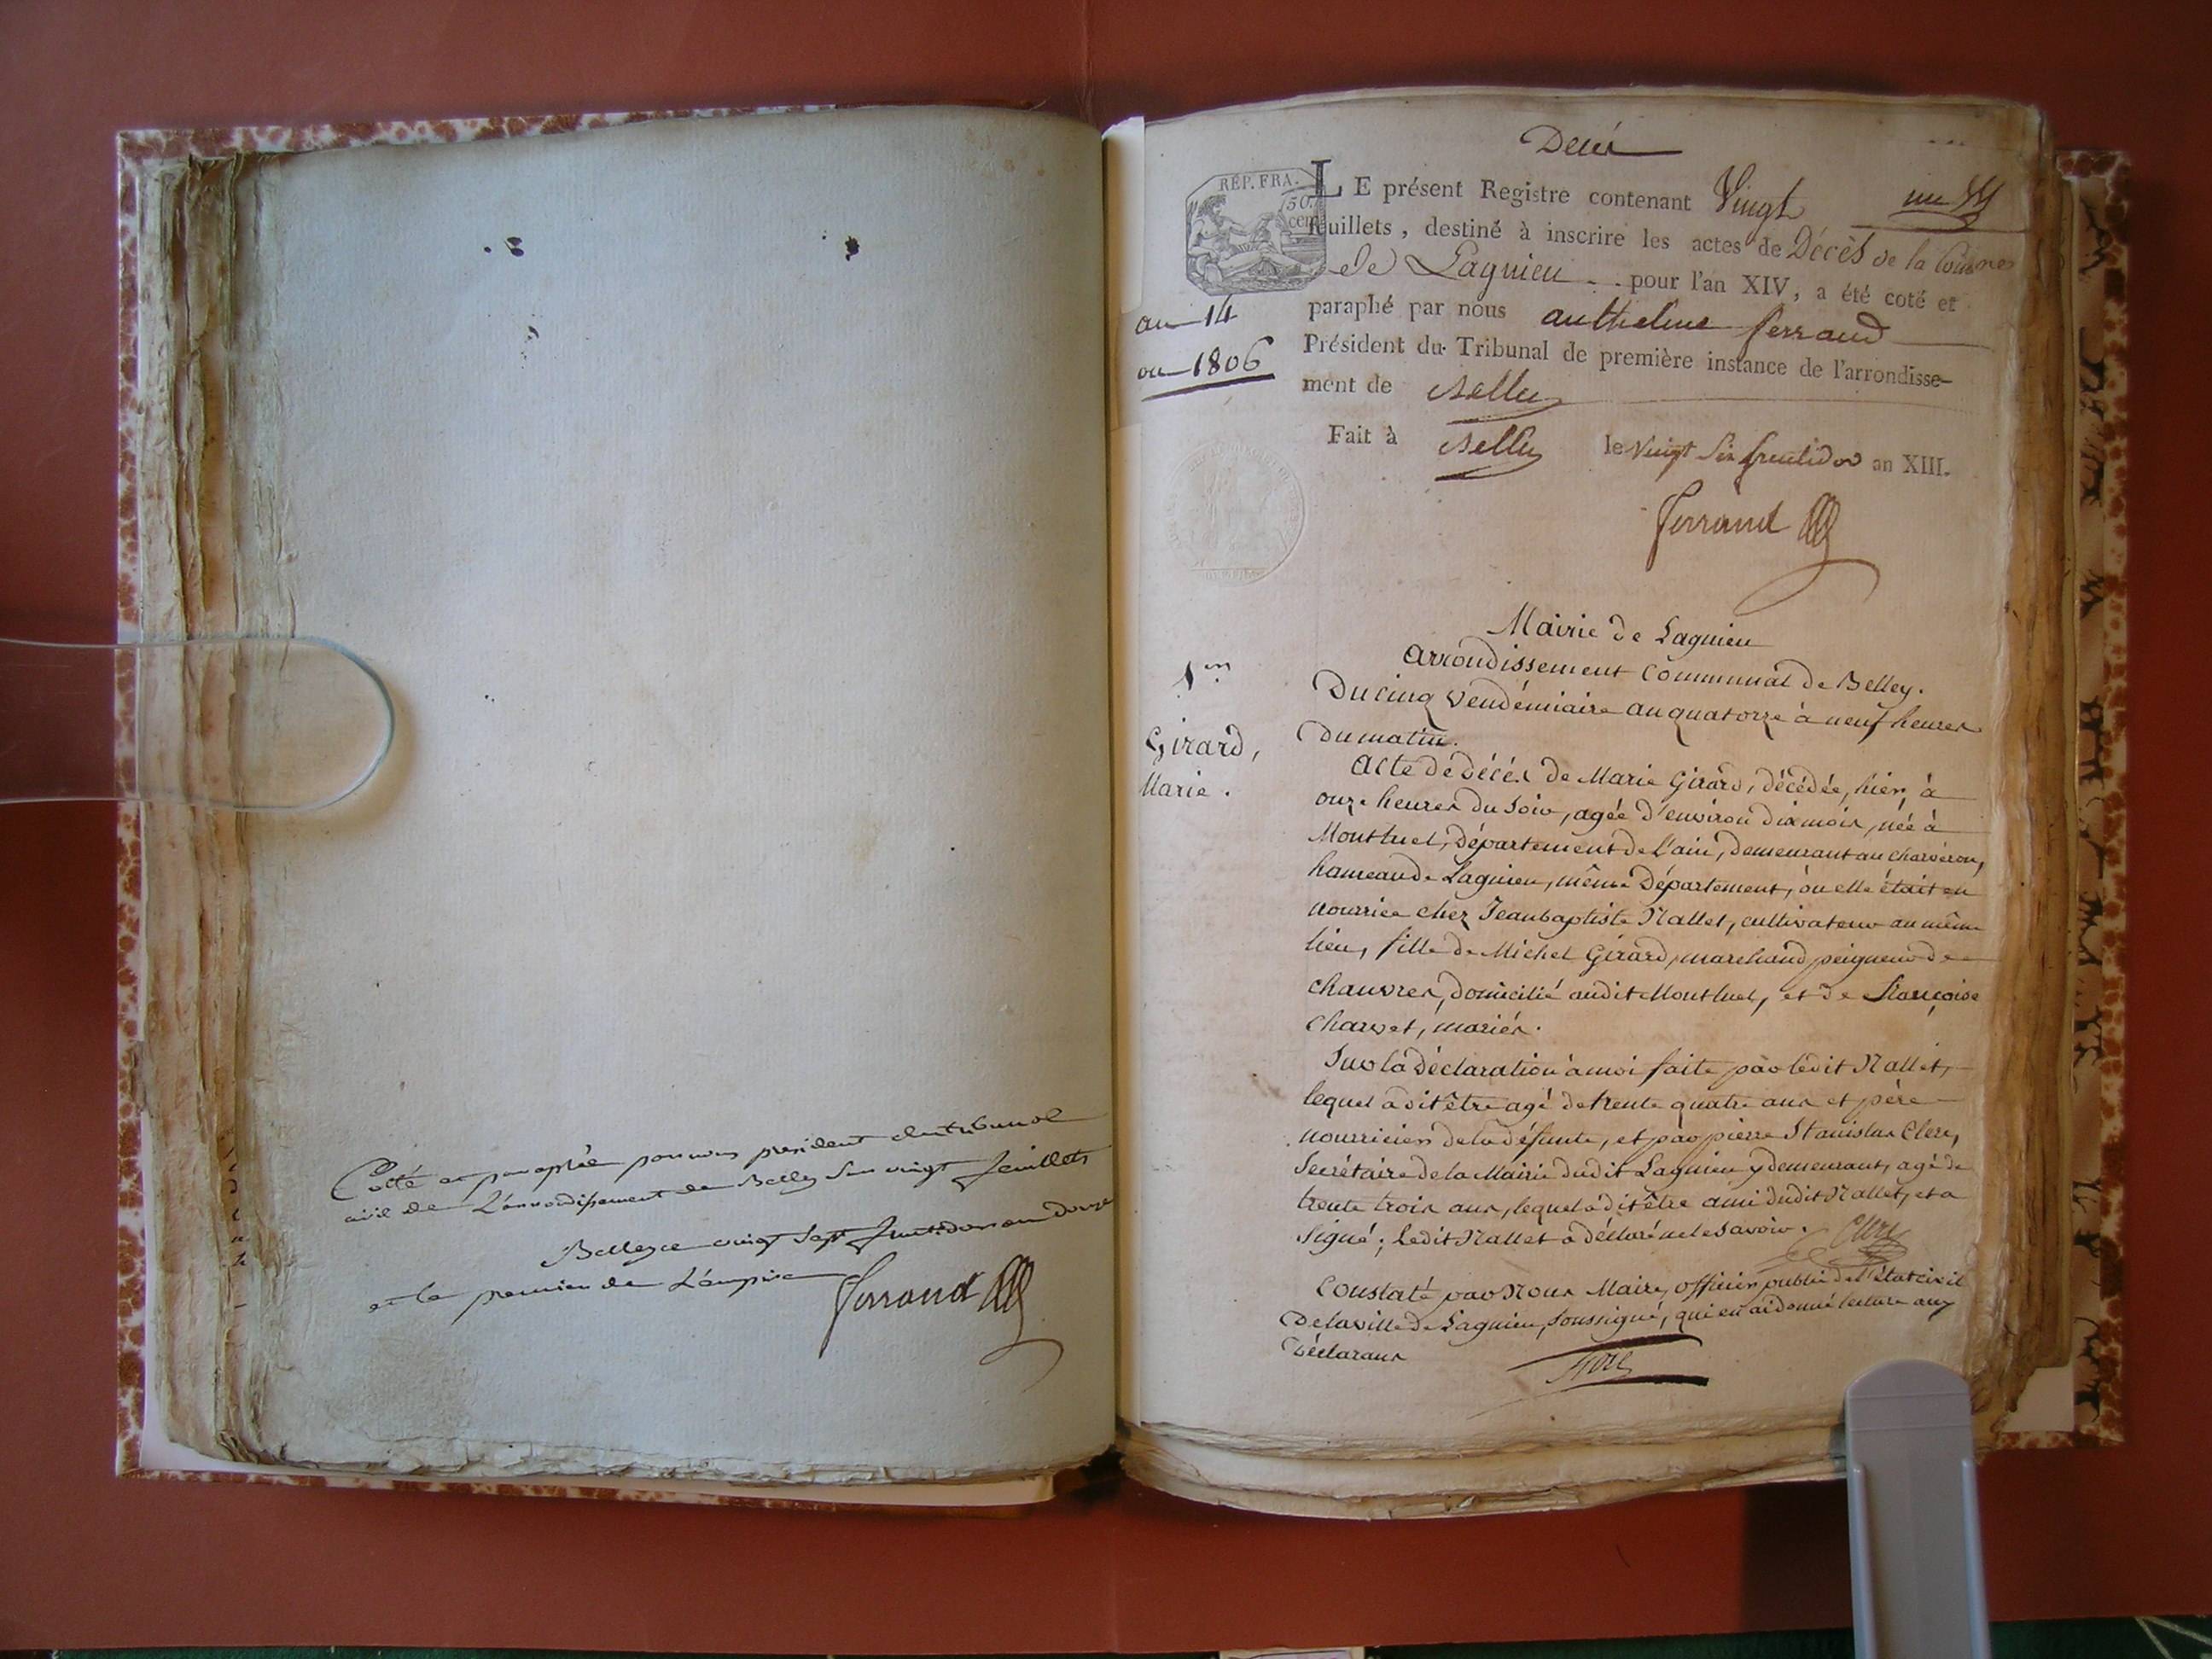 Cotté et paraphée par nous president du tribunal
civil de L'arrondissement de Belley Sur vingt feuillets
Belley ce vingt Sept fructidor an douze
et le premier de L'empire
Ferrand
Decès
REP. FRA.
50.
cent
LE présent Registre contenant Vingt un
feuillets, destiné à inscrire les actes de Décès de la Commune
de Lagnieu pour l'an XIV, a été coté et
paraphé par nous anthelme ferrand
Président du Tribunal de première instance de l'arrondisse-
ment de Belley
Fait à Belley le Vingt Six fructidor an XIII.
Ferrand
an 14
ou 1806
Mairie de Lagnieu
Arrondissement Communal de Belley.
1er
Girard,
Marie.
Du cinq Vendémiaire an quatorze à neuf heures
Du matin.
Acte de décès de Marie Girard, décédée, hier, à
onze heures du Soir, agée d'environ dix mois, née à
Montluel, Département de l'ain, demeurant au charveron,
hameau de Lagnieu, même Département, où elle était en
nourrice chez Jean baptiste Nallet, cultivateur au même
lieu, fille de Michel Girard, marchand peigneur de
chanvres, domicilié audit Montluel, et de françoise
Charvet, mariés.
Sur la déclaration à moi faite par ledit Nallet,
lequel a dit être agé de trente quatre ans et père
nourricier de la défunte, et par pierre Stanislas Clerc,
Secrétaire de la Mairie dudit Lagnieu y demeurant, agé de
trente trois ans, lequel a dit être ami dudit Nallet, et a
Signé; ledit Nallet a déclaré ne le Savoir. Clerc
Constaté par Nous Maire, officier public de l'état civil
De la ville de Lagnieu, soussigné, qui en ai donné lecture aux
Déclarans